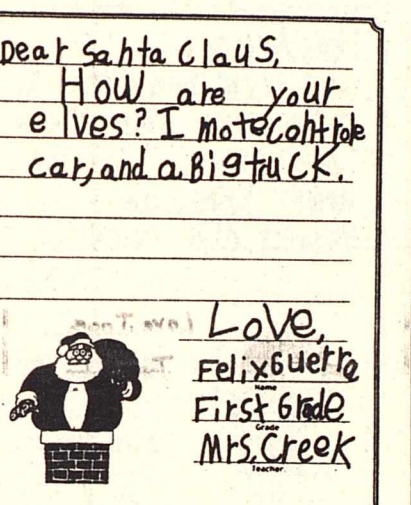 Dear Santa Claus,
How are your
elves? I mote controle
car, and a Big truck.
Love,
Felix Guerra
Name
First Grade
Grade
Mrs. Creek
Teacher